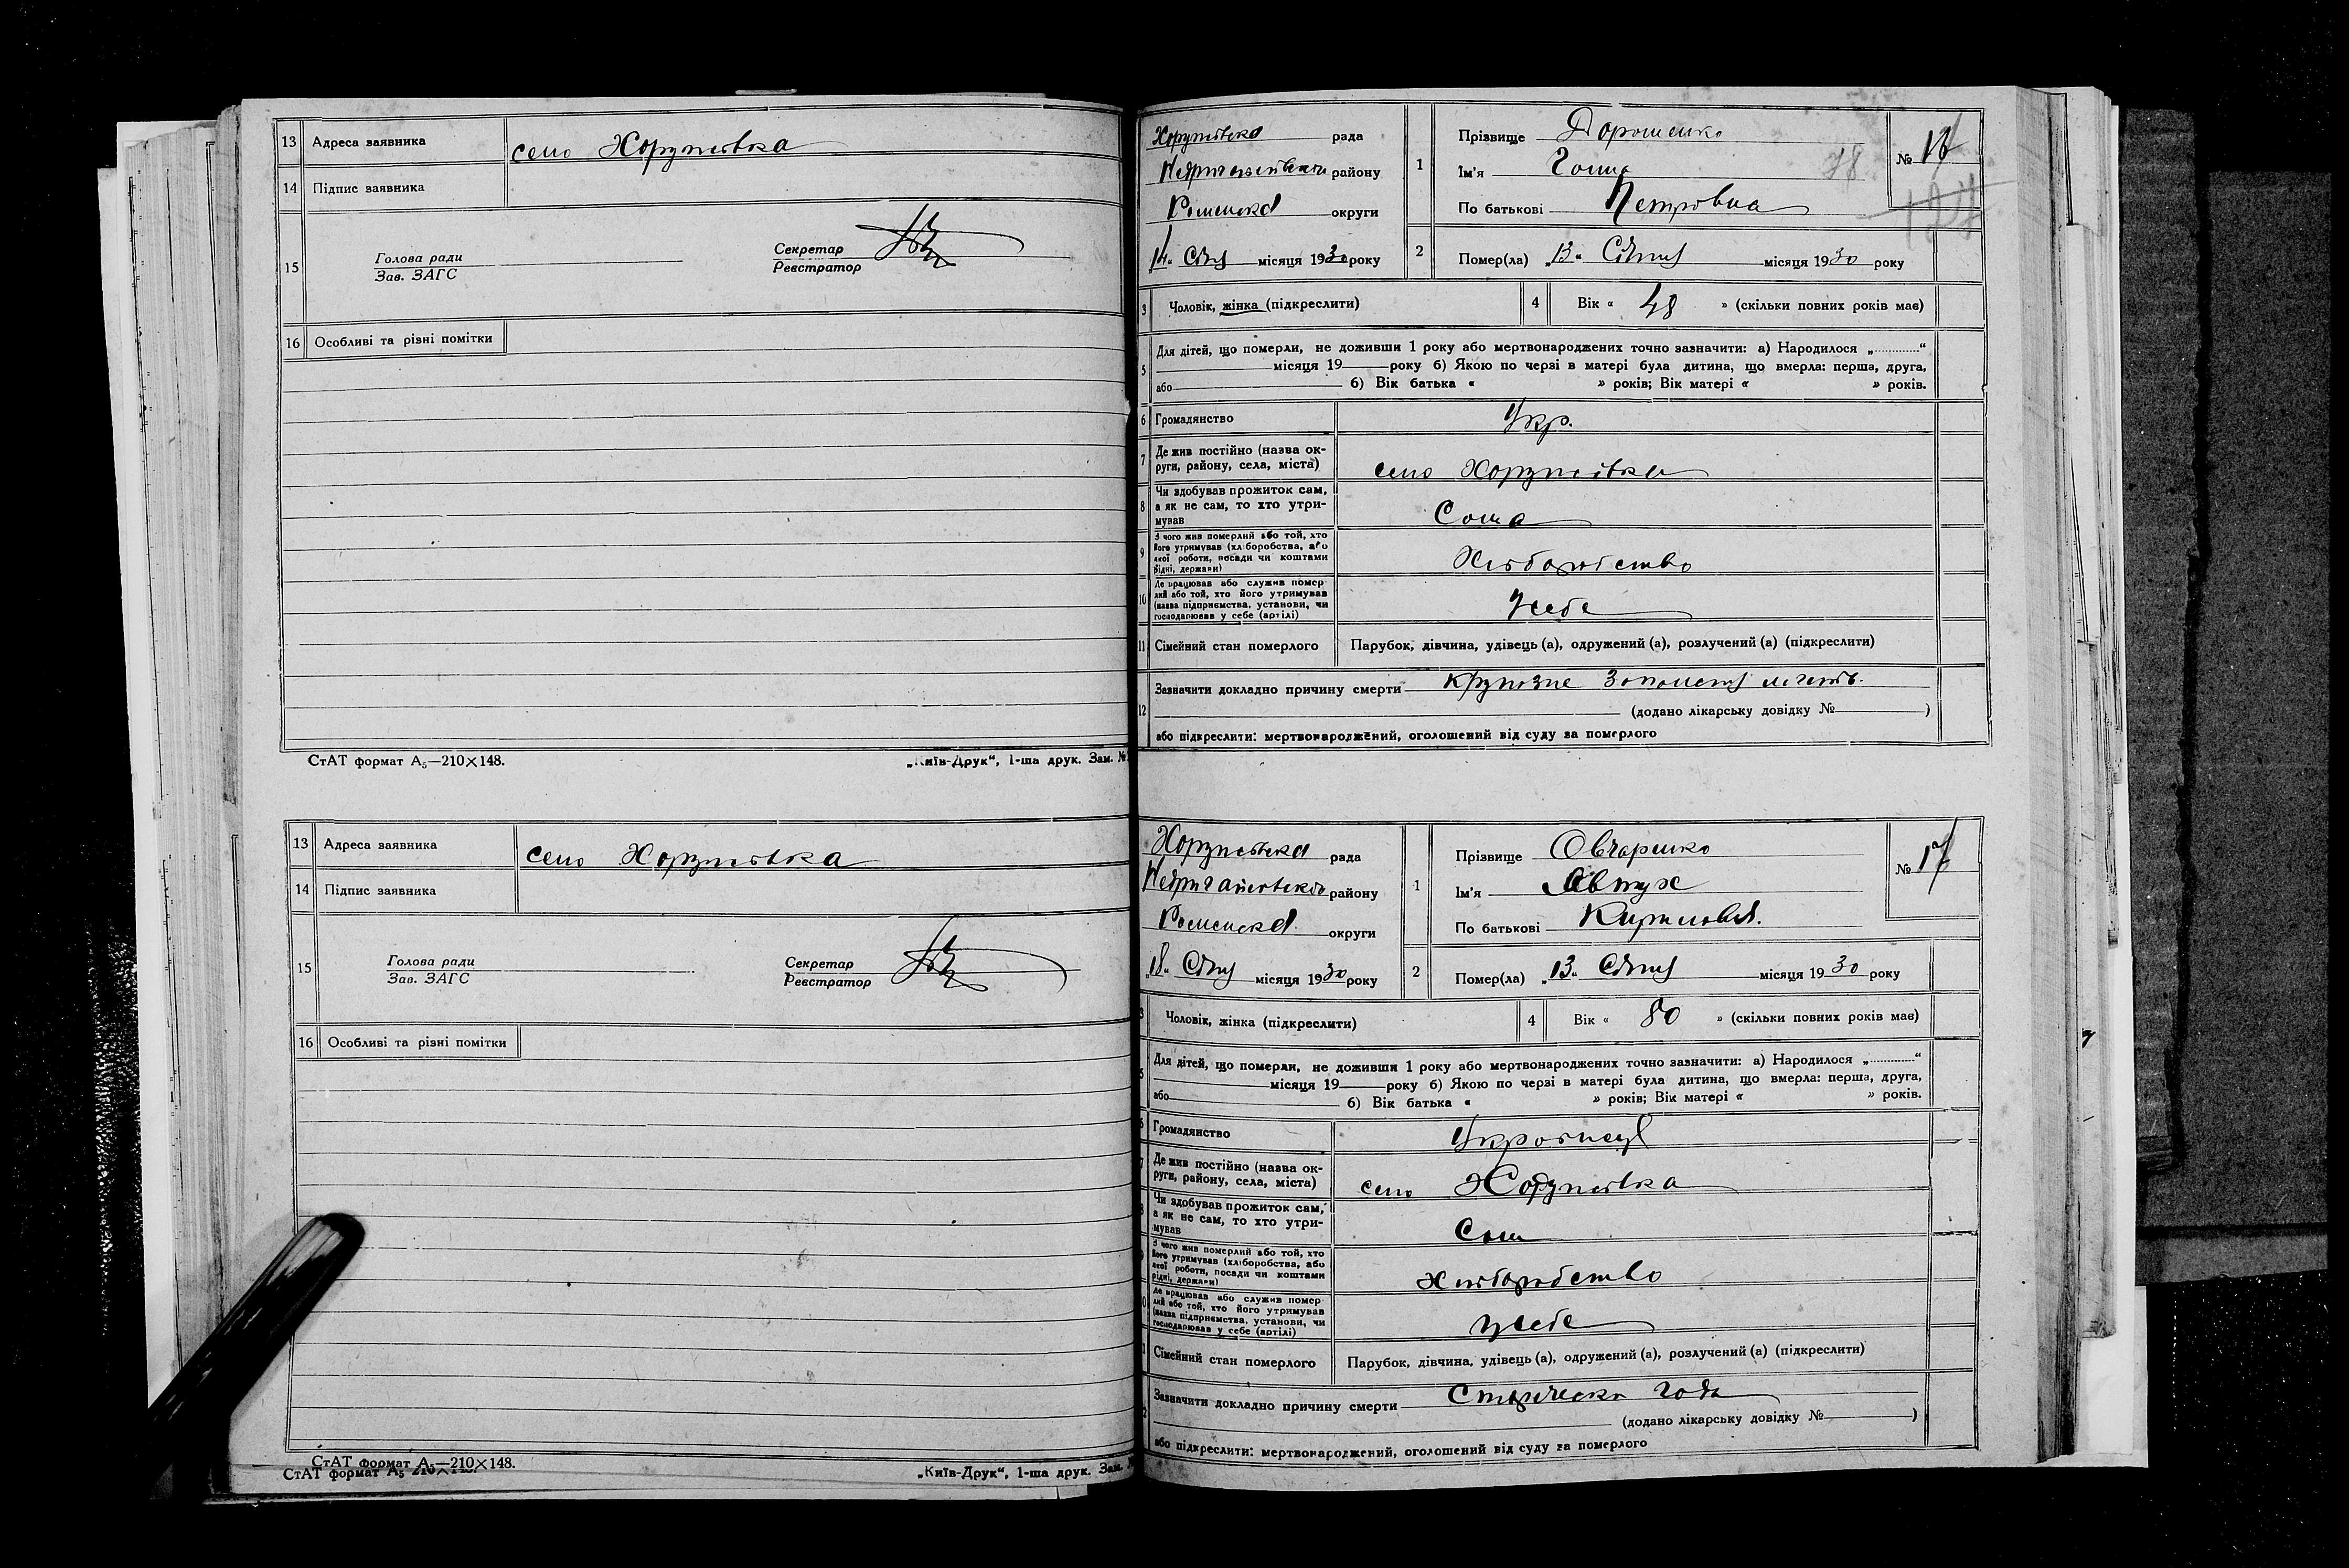 13 Адреса заявника село Хоружівка
14 Підпис заявника
15 Голова ради
Зав. ЗАГС
Секретар
Реєстратор
16 Особливі та різні помітки
СтАТ формат А₅—210×148.
„Київ-Друк“, 1-ша друк. Зам. №
13 Адреса заявника село Хоружівка
14 Підпис заявника
15 Голова ради
Зав. ЗАГС
Секретар
Реєстратор
16 Особливі та різні помітки
СтАТ формат А₅—210×148.
СтАТ формат А₅
„Київ-Друк“, 1-ша друк. Зам.
Хоружівська рада
району
Роменська округи
„14“ Січня місяця 1930 року
1 Прізвище Дорошенко
Ім'я
По батькові Петровна
№
2 Помер(ла) „13“ Січня місяця 1930 року
3 Чоловік, жінка (підкреслити)
4 Вік « 48 » (скільки повних років має)
5 Для дітей, що померли, не доживши 1 року або мертвонароджених точно зазначити: а) Народилося „............“
місяця 19 року б) Якою по черзі в матері була дитина, що вмерла: перша, друга,
або б) Вік батька « » років; Вік матері « » років.
6 Громадянство Укр.
7 Де жив постійно (назва ок-
руги, району, села, міста) село Хоружівка
8 Чи здобував прожиток сам,
а як не сам, то хто утри-
мував Сама
9 З чого жив померлий або той, хто
його утримував (хліборобства, або
якої роботи, посади чи коштами
рідні, держави) Хліборобство
10 Де працював або служив помер-
лий або той, хто його утримував
(назва підприємства, установи, чи
господарював у себе (артілі) У себе
11 Сімейний стан померлого Парубок, дівчина, удівець (а), одружений (а), розлучений (а) (підкреслити)
12 Зазначити докладно причину смерти Крупозне
(додано лікарську довідку № )
або підкреслити: мертвонароджений, оголошений від суду за померлого
Хоружівська рада
району
Роменська округи
„18“ Січня місяця 1930 року
1 Прізвище Овчаренко
Ім'я Явтух
По батькові Кирилов.
№ 17
2 Помер(ла) „13“ Січня місяця 1930 року
Чоловік, жінка (підкреслити)
4 Вік « 80 » (скільки повних років має)
Для дітей, що померли, не доживши 1 року або мертвонароджених точно зазначити: а) Народилося „............“
місяця 19 року б) Якою по черзі в матері була дитина, що вмерла: перша, друга,
або б) Вік батька « » років; Вік матері « » років.
Громадянство
Де жив постійно (назва ок-
руги, району, села, міста) село Хоружівка
Чи здобував прожиток сам,
а як не сам, то хто утри-
мував Сам
З чого жив померлий або той, хто
його утримував (хліборобства, або
якої роботи, посади чи коштами
рідні, держави) Хліборобство
Де працював або служив помер-
лий або той, хто його утримував
(назва підприємства, установи, чи
господарював у себе (артілі) У себе
Сімейний стан померлого Парубок, дівчина, удівець (а), одружений (а), розлучений (а) (підкреслити)
Зазначити докладно причину смерти
(додано лікарську довідку № )
або підкреслити: мертвонароджений, оголошений від суду за померлого